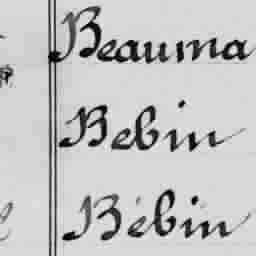 Beauma
Bebin
Bébin